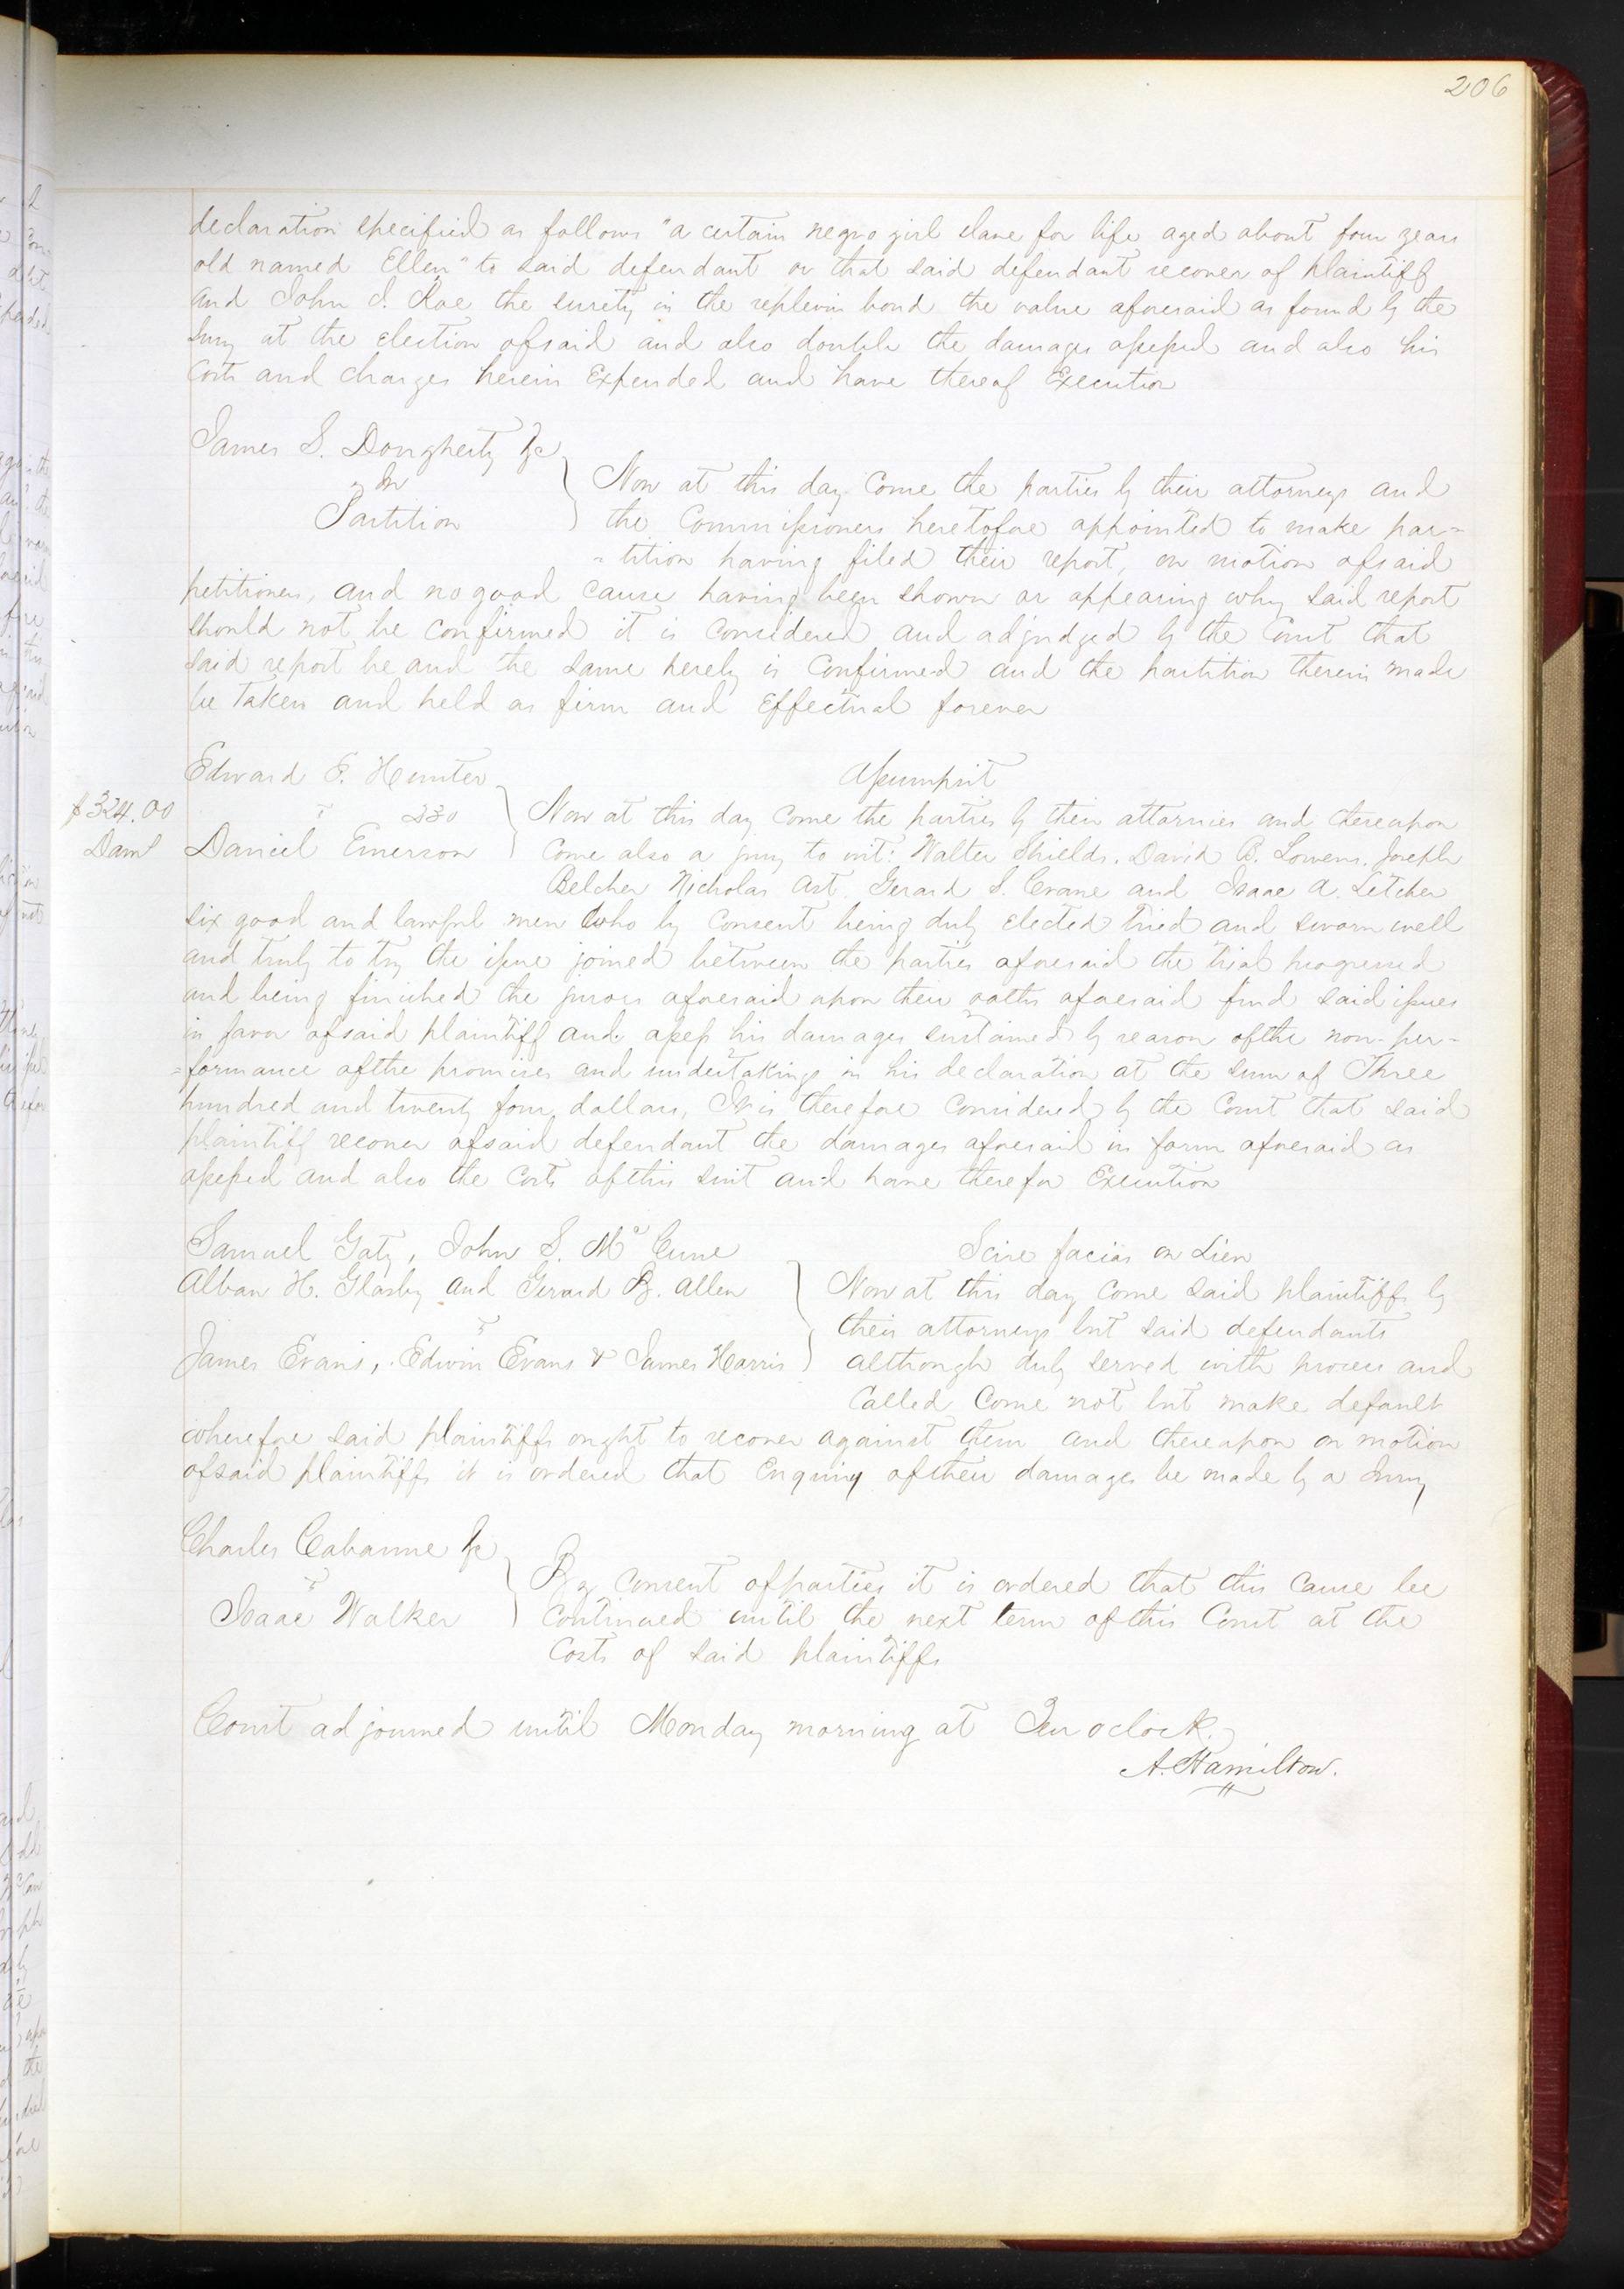 206
declaration specified as follows "a certain negro girl slave for life aged about four years
old named Ellen" to said defendant or that said defendant recover of plaintiff
and John J. Roe the surety in the replevin bond the value aforesaid as found by the
Jury at the Election of said and also double the damages assessed and also his
Costs and charges herein Expended and have thereof Execution
James S. Dougherty &c
In
Partition
Now at this day Come the parties by their attorneys and
the Commissioners heretofore appointed to make par=
=tition having filed their report, on motion of said
petitioners, and no good cause having been shown or appearing why said report
should not be confirmed it is Considered and adjudged by the Court that
said report be and the same hereby is Confirmed and the partition therein made
be taken and held as firm and Effectual forever
Edward F. Hunter
Assumpsit
$324.00
Dam
v 230
Daniel Emerson
Now at this day Come the parties by their attornies and thereupon
Come also a jury to wit: Walter Shields, David B. Lowens, Joseph
Belcher Nicholas Art. Gerard S. Crane and Isaac A. Letcher
six good and lawful men who by Consent being duly elected tried and sworn well
and truly to try the issue joined between the parties aforesaid the trial progressed
and being finished the jurors aforesaid upon their oaths aforesaid find said issues
in favor of said plaintiff and assess his damages sustained by reason of the non-per-
=formance of the promises and undertakings in his declaration at the sum of Three
hundred and twenty four dollars, It is therefore Considered by the Court that said
plaintiff recover of said defendant the damages aforesaid in form aforesaid as
assessed and also the Costs of this suit and have therefor Execution
Samuel Gaty, John S. Mc Cune
Alban H. Glasby and Gerard B. Allen
v
James Evans, Edwin Evans & James Harris
Scire facias on Lien
Now at this day Come said plaintiffs by
their attorneys but said defendants
although duly served with process and
Called Come not but make default
wherefore said plaintiffs ought to recover against them and thereupon on motion
of said plaintiffs it is ordered that Enquiry of their damages be made by a Jury
Charles Cabanne &c
v
Isaac Walker
By Consent of parties it is ordered that this Cause be
Continued until the next term of this Court at the
Costs of said plaintiffs
Court adjourned until Monday morning at Ten oclock.
A. Hamilton.